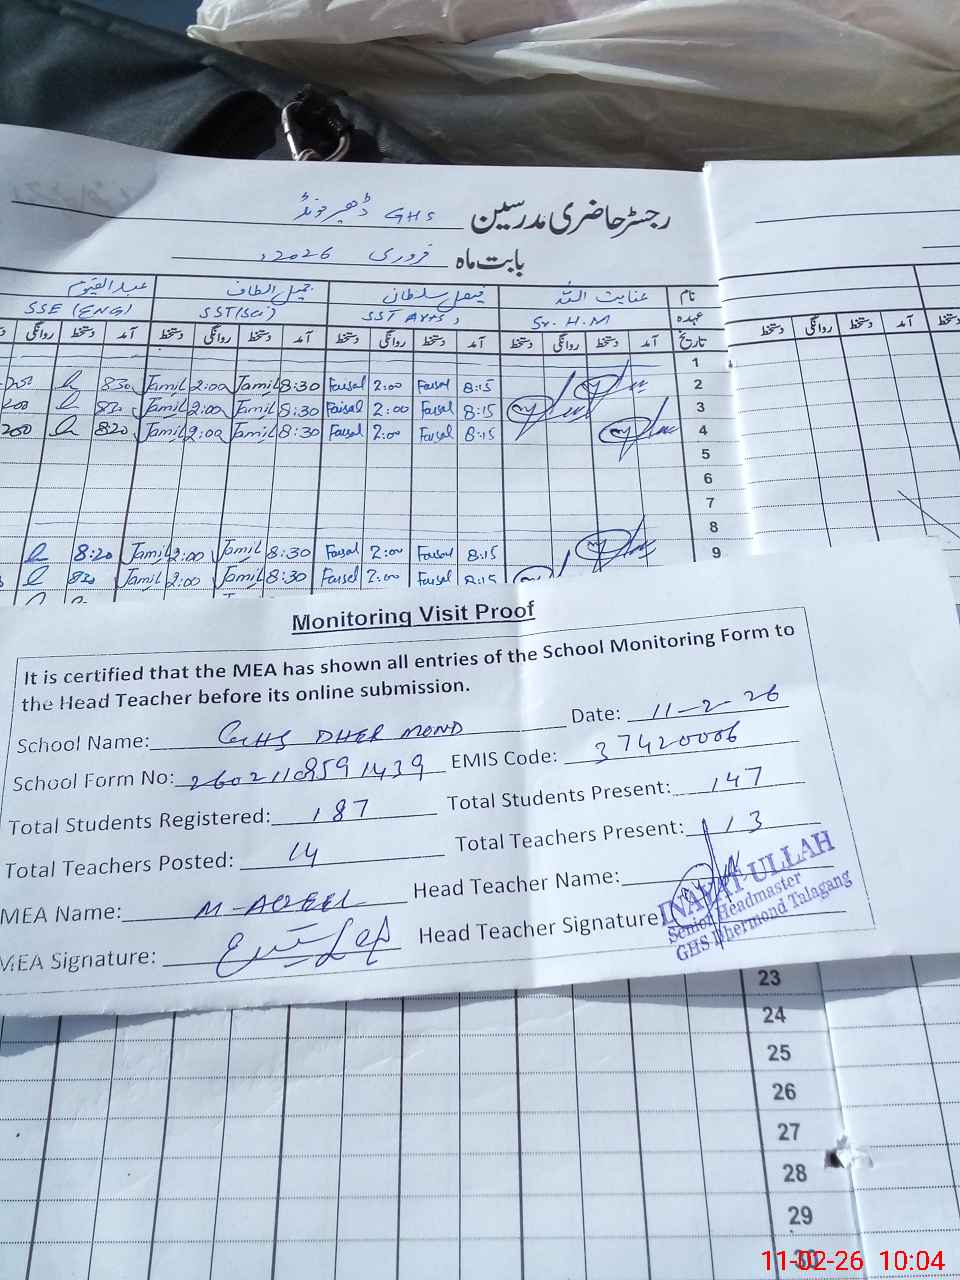 رجسٹر حاضری مدرسین GHS ڈھیر مونڈ
بابت ماہ فروری 2026ء
نام عنایت اللہ فیصل سلطان جمیل الطاف عبدالقیوم
عہدہ Sr. H.M SST Arts SST(Sci) SSE (ENG)
تاریخ آمد دستخط روانگی دستخط آمد دستخط روانگی دستخط آمد دستخط روانگی دستخط آمد دستخط روانگی
آمد دستخط روانگی دستخط
1
2 8:15 Faisal 2:00 Faisal 8:30 Jamil 2:00 Jamil 830 200
3 8:15 Faisal 2:00 Faisal 8:30 Jamil 2:00 Jamil 820 200
4 8:15 Faisal 2:00 Faisal 8:30 Jamil 2:00 Jamil 820 200
5
6
7
8
9 8:15 Faisal 2:00 Faisal 8:30 Jamil 2:00 Jamil 8:20
8:15 Faisal 2:00 Faisal 8:30 Jamil 2:00 Jamil 820
Monitoring Visit Proof
It is certified that the MEA has shown all entries of the School Monitoring Form to
the Head Teacher before its online submission.
School Name: GHS DHER MOND Date: 11-2-26
School Form No: 26021108591439 EMIS Code: 37420006
Total Students Registered: 187 Total Students Present: 147
Total Teachers Posted: 14 Total Teachers Present: 13
MEA Name: M-AQEEL Head Teacher Name:
MEA Signature: Head Teacher Signature
INAYAT ULLAH
Senior Headmaster
GHS Dhermond Talagang
23
24
25
26
27
28
29
30
11-02-26 10:04